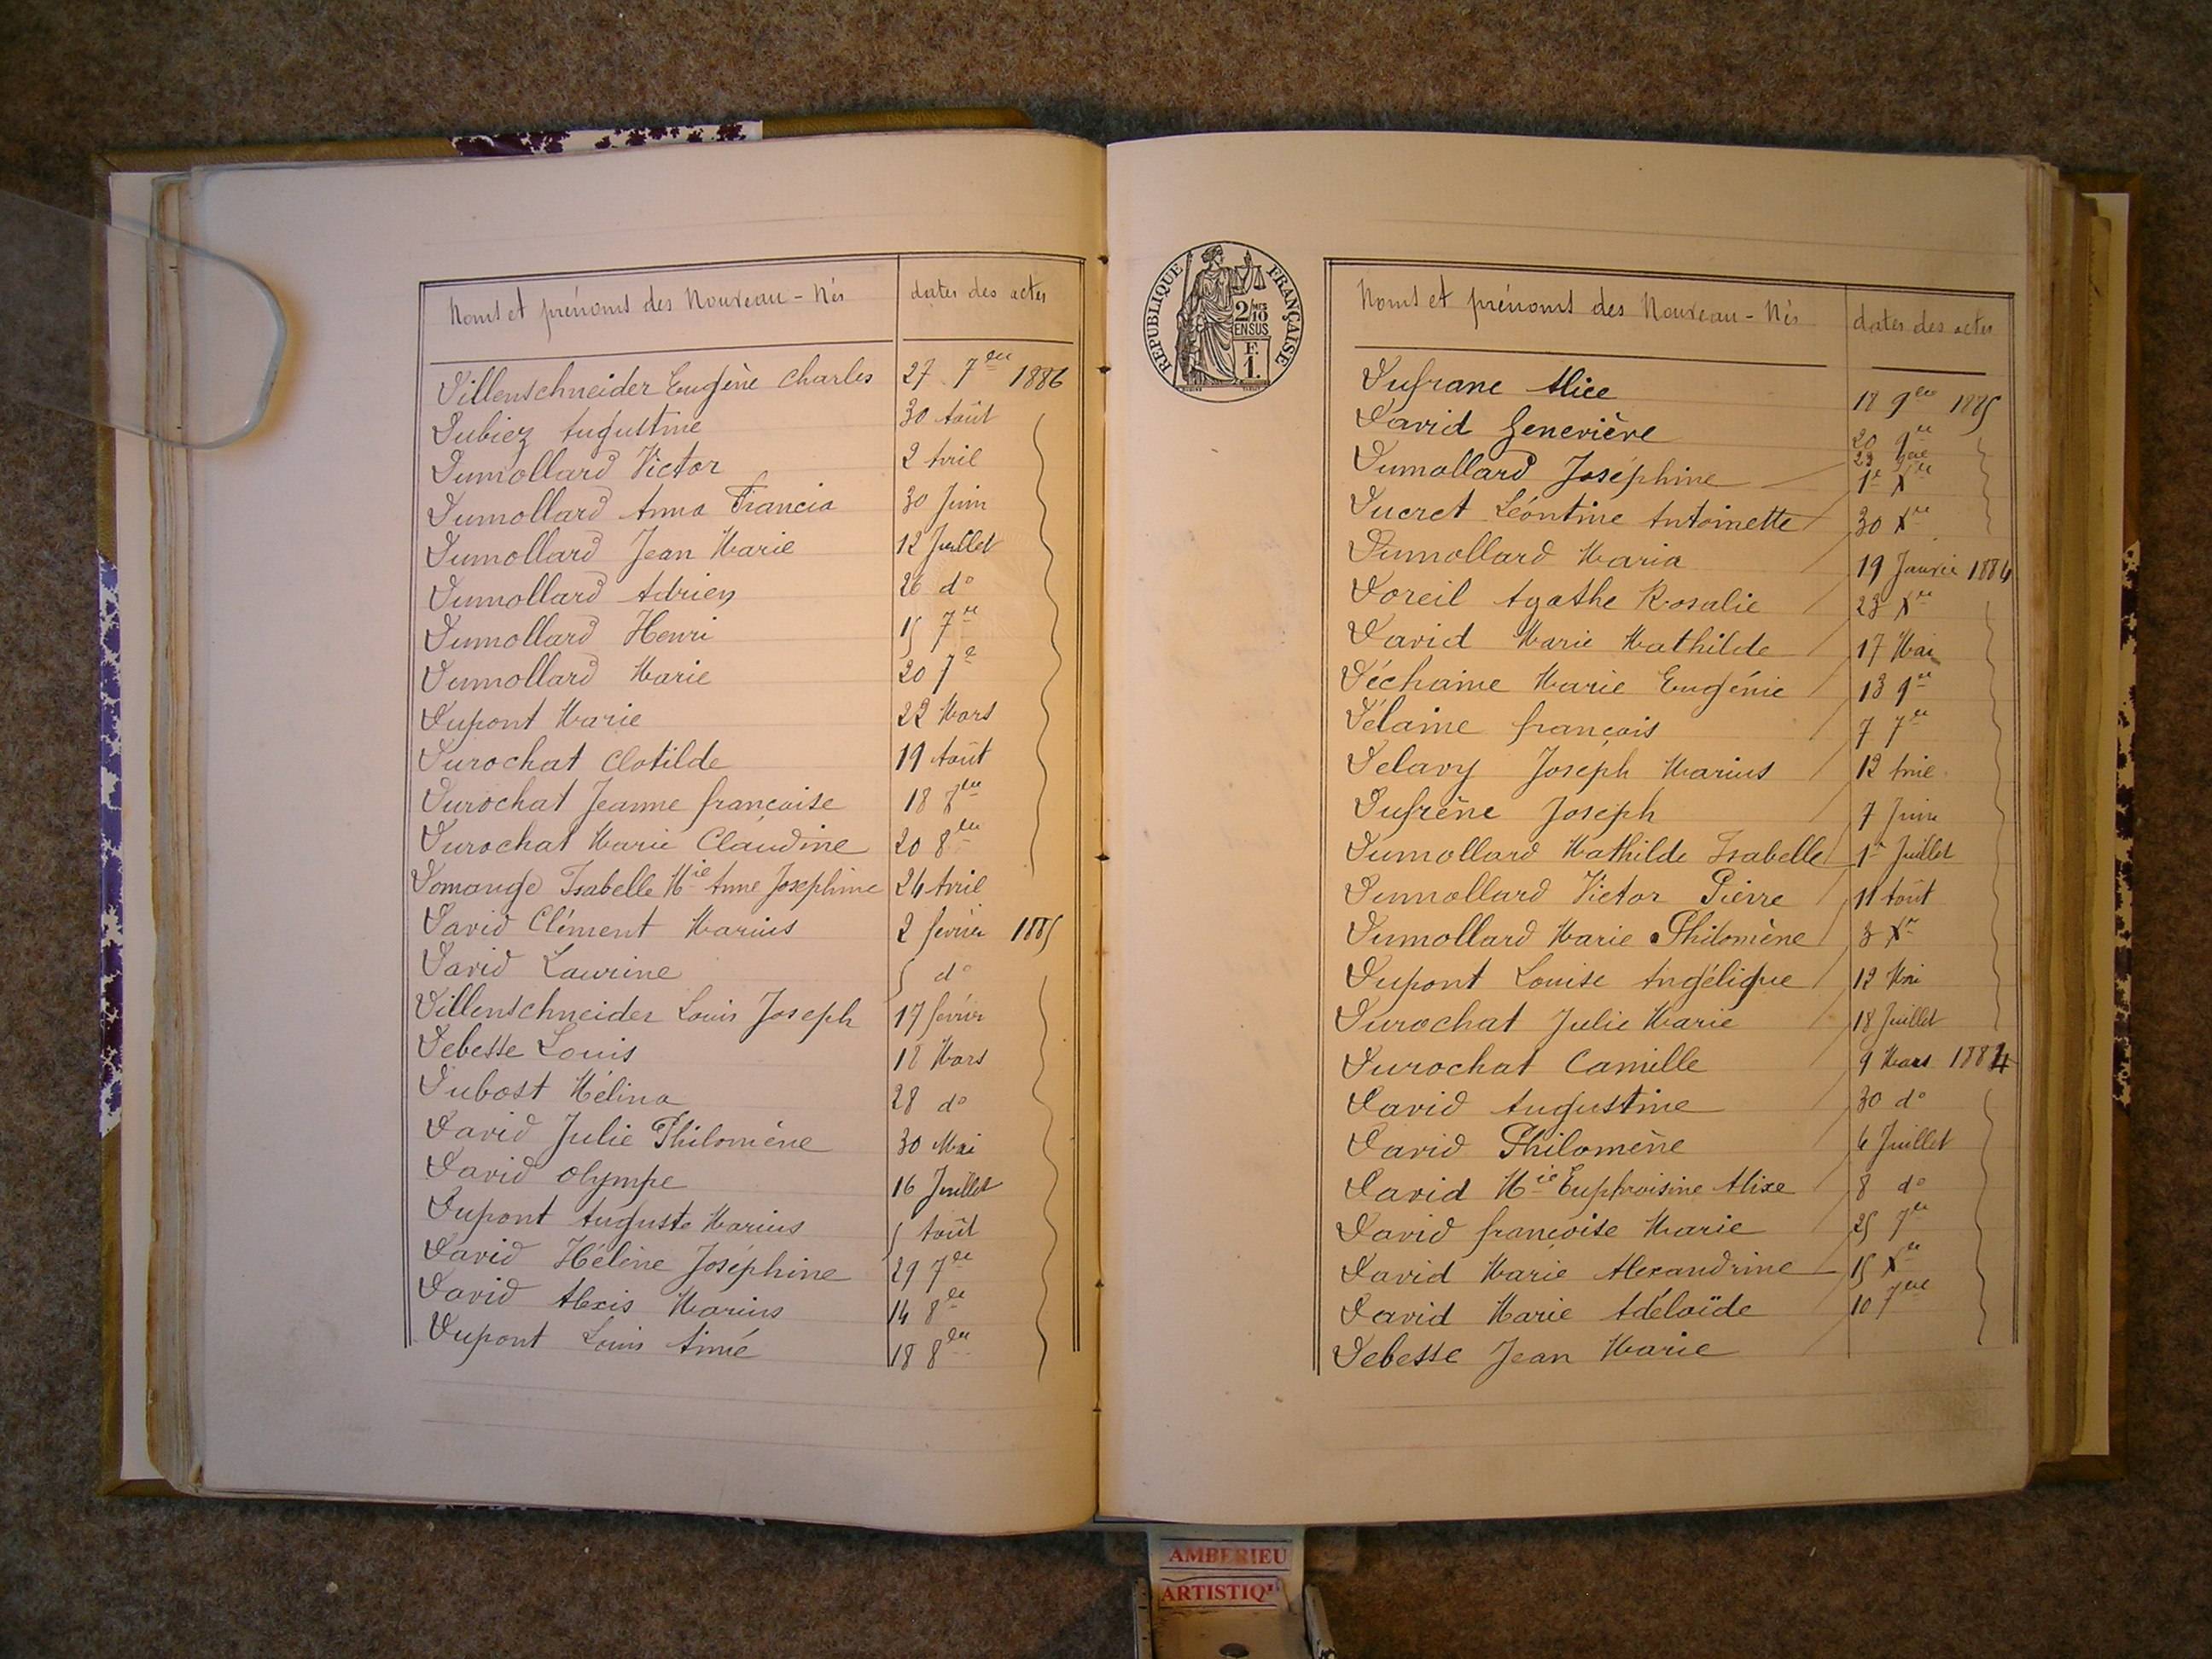 Noms et prénoms des Nouveau-Nés dates des actes
Dillenschneider Eugène Charles 27 7bre 1886
Dubiez Augustine 30 Août
Dumollard Victor 2 Avril
Dumollard Anna Francia 30 Juin
Dumollard Jean Marie 12 Juillet
Dumollard Adrien 26 do
Dumollard Henri 15 7re
Dumollard Marie 20 7e
Dupont Marie 22 Mars
Durochat Clotilde 19 Août
Durochat Jeanne françoise 18 7bre
Durochat Marie Claudine 20 8bre
Domange Isabelle Mie Anne Josephine 24 Avril
David Clément Marius 2 février 1885
David Laurine 5 do
Dillenschneider Louis Joseph 17 février
Debesse Louis 18 Mars
Dubost Mélina 28 do
David Julie Philomène 30 Mai
David Olympe 16 Juillet
Dupont Auguste Marius 5 Août
David Hélène Joséphine 29 7bre
David Alexis Marius 14 8bre
Dupont Louis Aimé 18 8bre
RÉPUBLIQUE FRANÇAISE
2/10
EN SUS
F.
1.
Noms et prénoms des Nouveau-Nés dates des actes
Dufrane Alice 18 9bre 1885
David Geneviève 20 9re
23 9bre
Dumollard Joséphine 1er Xre
Ducret Léontine Antoinette 30 Xre
Dumollard Maria 19 Janvier 1884
Doreil Agathe Rosalie 23 Xre
David Marie Mathilde 17 Mai
Déchaine Marie Eugénie 13 9re
Délaine françois 7 7re
Delavy Joseph Marius 12 Avril
Dufrène Joseph 7 Juin
Dumollard Mathilde Isabelle 1er Juillet
Dumollard Victor Pierre 11 Août
Dumollard Marie Philomène 3 Xre
Dupont Louise Angélique 12 Mai
Durochat Julie Marie 18 Juillet
Durochat Camille 9 Mars 1884
David Augustine 30 do
David Philomène 6 Juillet
David Mie Euphroisine Alixe 8 do
David françoise Marie 25 7re
David Marie Alexandrine 15 Xre
David Marie Adélaïde 10 7bre
Debesse Jean Marie
AMBERIEU
ARTISTIQ